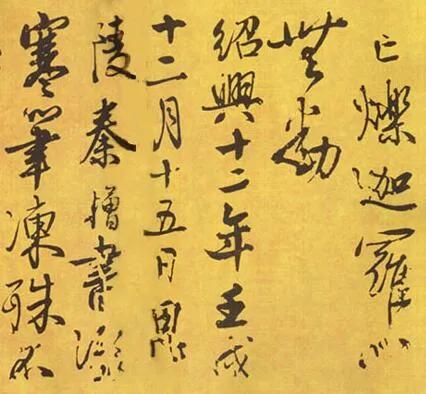 亡爍迦羅心
無動
紹興十二年壬戌
十二月十五日毘
陵秦憎書凝
寒筆凍殊不